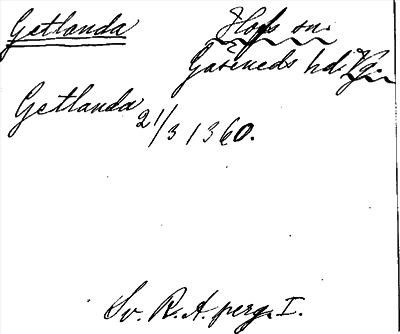 Getlanda
Hofs sn.
Gäseneds hd. Vg.
Getlanda 21/3 1360.
Sv. R. A. perg. I.